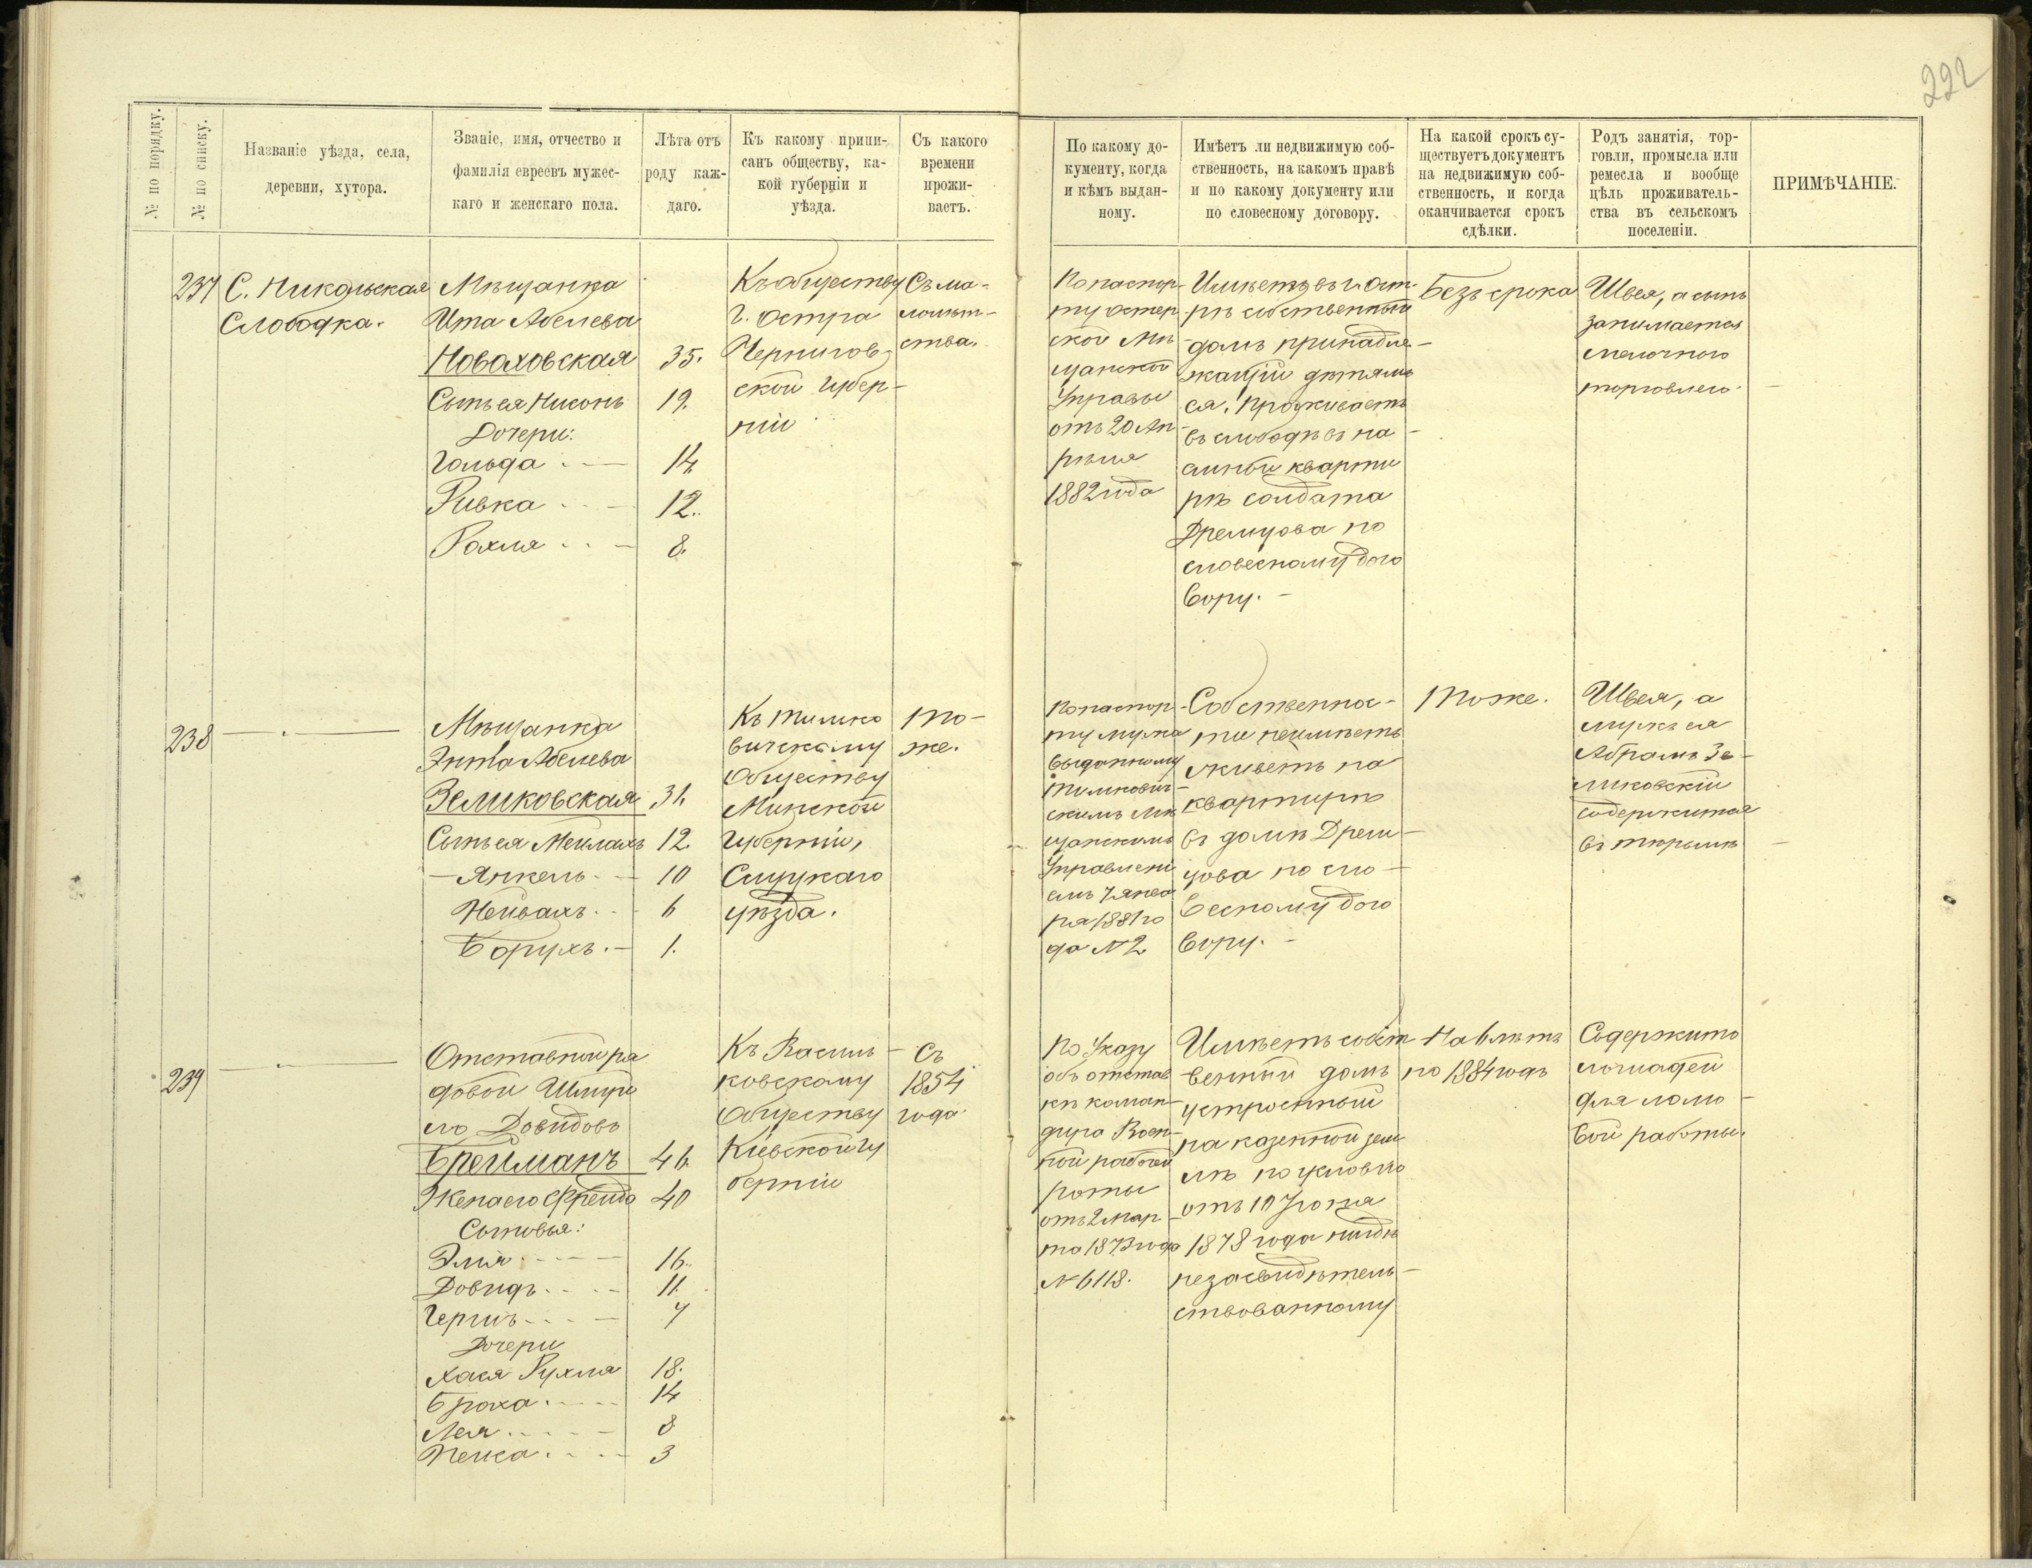 222
№ по порядку.
№ по списку.
Названіе уѣзда, села,
деревни, хутора.
Званіе, имя, отчество и
фамилія евреевъ мужес-
каго и женскаго пола.
Лѣта отъ
роду каж-
даго.
Къ какому припи-
санъ обществу, ка-
кой губерніи и
уѣзда.
Съ какого
времени
прожи-
ваетъ.
По какому до-
кументу, когда
и кѣмъ выдан-
ному.
Имѣетъ ли недвижимую соб-
ственность, на какомъ правѣ
и по какому документу или
по словесному договору.
На какой срокъ су-
ществуетъ документъ
на недвижимую соб-
ственность, и когда
оканчивается срокъ
сдѣлки.
Родъ занятія, тор-
говли, промысла или
ремесла и вообще
цѣль проживатель-
ства въ сельскомъ
поселеніи.
ПРИМѢЧАНІЕ.
237
С. Никольская
Слободка.
Мѣщанка
Ита Абелева
Новаховская 35.
Сынъ ея Нисонъ 19.
Дочери:
Гольда 14
Ривка 12.
Рохля 8.
Къ обществу
г. Остра
Чернигов-
ской губер-
ніи
Съ ма-
лолѣт-
ства.
По паспор-
ту Остер
ской Мѣ
щанской
Управы
отъ 20 Ап
рѣля
1882 года
Имѣетъ въ г. Ост-
рѣ собственный
домъ принадле-
жащій дѣтямъ
ея. Проживаетъ
въ слободкѣ въ на
емной кварти
рѣ солдата
Дремцова по
словесному дого
вору. -
Безъ срока
Швея, а сынъ
занимается
мелочною
торговлею.
238
Мѣщанка
Энта Абелева
Зеликовская 31.
Сынъ ея Мейлахъ 12.
- Янкель 10
Нейвахъ 6
Борухъ. 1.
Къ Тимко
вичскому
Обществу
Минской
губерніи,
Слуцкаго
уѣзда.
То-
же.
По паспор-
ту мужа
выданному
Тимкович-
скимъ Мѣ
щанскимъ
Управлені
емъ 7 янва
ря 1881 го
да № 2
Собственнос-
ти не имѣетъ
живетъ на
квартирѣ
въ домѣ Дрем-
цова по сло-
весному дого
вору. -
Тоже.
Швея, а
мужъ ея
Абрамъ Зе-
ликовскій
содержится
въ тюрьмѣ
239
Отставной ря
довой Шмуй
ло Довидовъ
Брейманъ 46.
Жена его Фрейда 40
Сыновья:
Элія 16.
Довидъ 11.
Гершъ 7
Дочери
Хася Рухля 18.
Броха. 14
Лея 8
Песса 3
Къ Василь-
ковскому
Обществу
Кіевской гу
берніи
Съ
1854
года
По Указу
объ отстав
кѣ коман-
дира Воен-
ной рабочей
роты
отъ 2 Мар-
та 1873 года
№ 6118.
Имѣетъ собст
венный домъ
устроенный
на казенной зем
лѣ по условію
отъ 10 Іюня
1878 года нигдѣ
незасвидѣтель-
ствованному
На 6 лѣтъ
по 1884 годъ
Содержитъ
лошадей
для ломо-
вой работы.